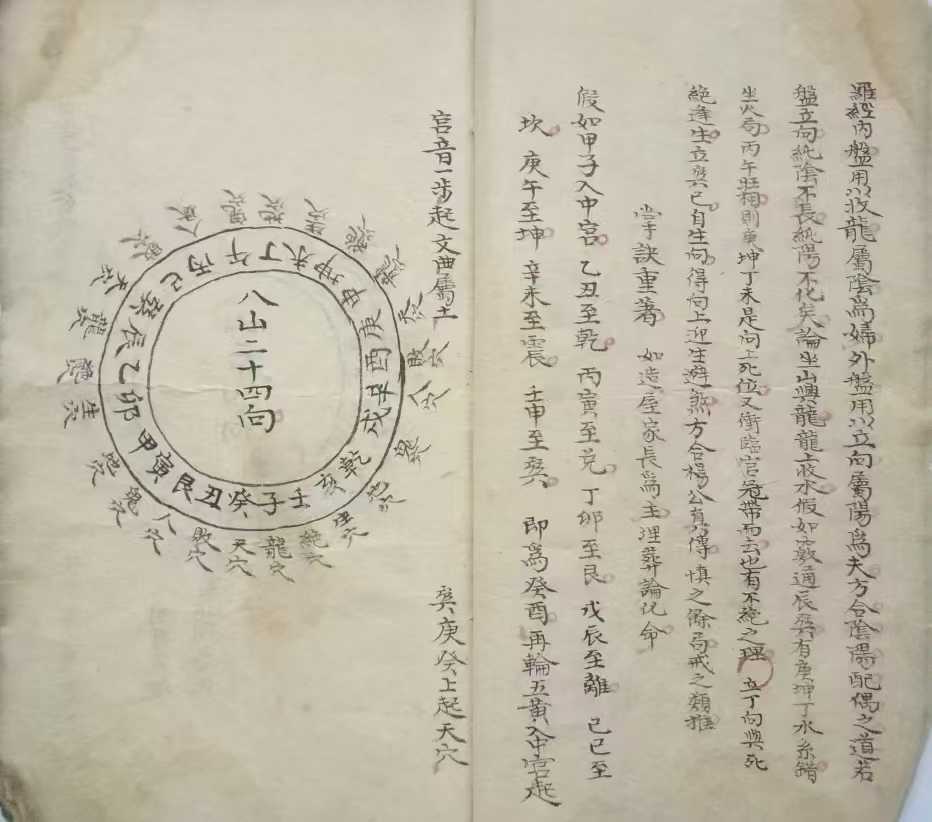 羅經內盤用以收龍屬陰爲婦外盤用以立向屬陽爲夫方合陰陽配偶之道若
盤立向純陰不長純陽不化矣論坐山與龍龍上收水假如家敦通辰巽有庚坤丁水糸錯
坐火局丙午旺相則庚坤丁未是向上死位又衝臨官冠帶而去也有不絕之理 立丁向與死
絕逢生立巽巳自生向得向上迎生避煞方合楊公真傳慎之餘局戒之類推
掌訣重著 如造屋家長爲主埋葬論化命
假如甲子入中宮 乙丑至乾 丙寅至兌 丁卯至艮 戊辰至離 己巳至
坎 庚午至坤 辛未至震 壬申至巽 即爲癸酉再輪五黃入中宮起
宮音一步起文曲屬土
巽庚癸上起天穴
八山二十四向
壬子癸丑艮寅甲卯乙辰巽巳丙午丁未坤申庚酉辛戌乾亥
絕穴
龍穴
天穴
敗穴
人穴
鬼穴
地穴
生穴